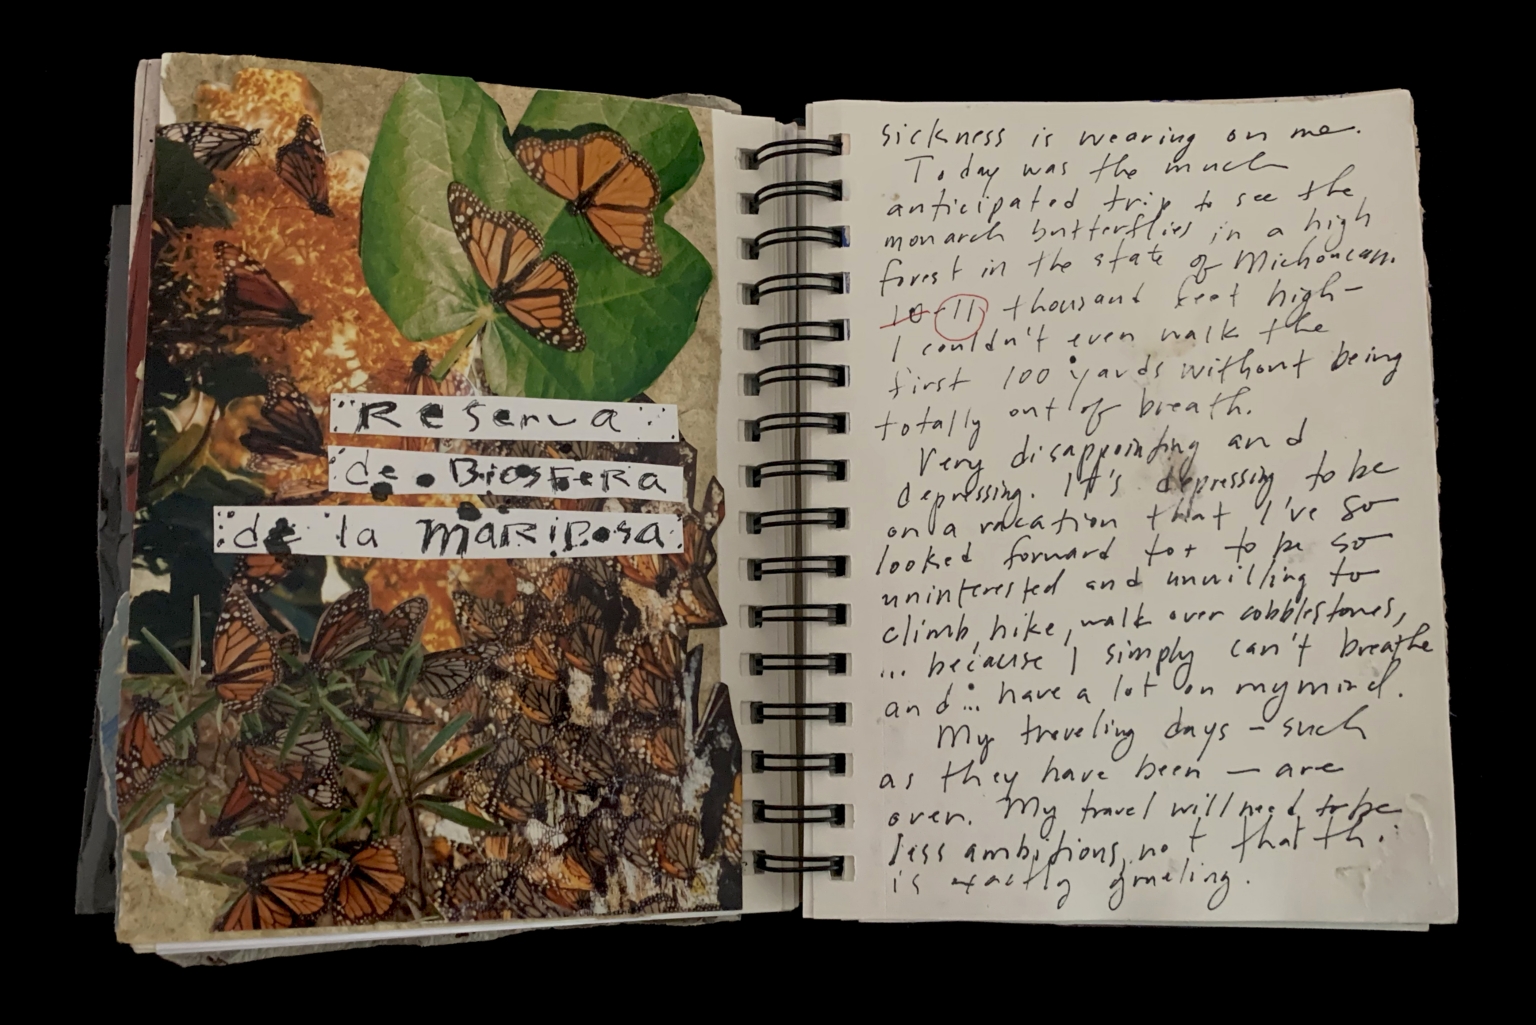 Reserva
de Biosfera
de la mariposa
sickness is wearing on me.
Today was the much
anticipated trip to see the
monarch butterflies in a high
forest in the state of Michoucan.
10-11 thousand feet high—
I couldn't even walk the
first 100 yards without being
totally out of breath.
Very disappointing and
depressing. It's depressing to be
on a vacation that I've so
looked forward to + to be so
uninterested and unwilling to
climb, hike, walk over cobblestones,
... because I simply can't breathe
and... have a lot on my mind.
My traveling days — such
as they have been — are
over. My travel will need to be
less ambitious, not that th.
is exactly grueling.